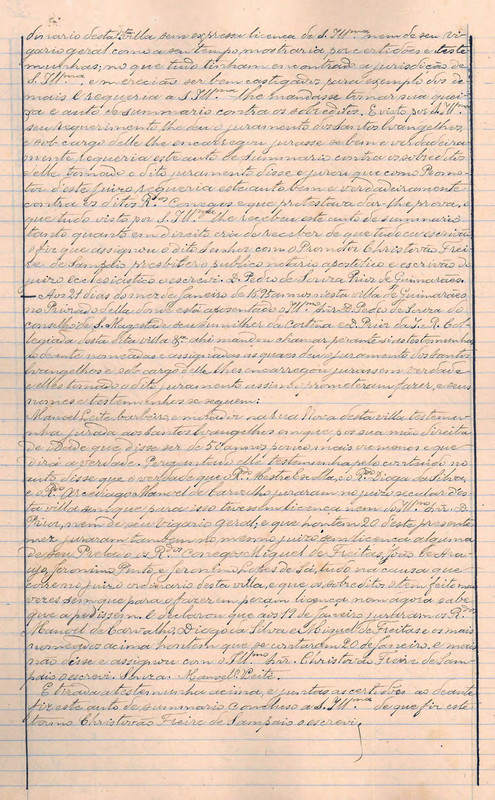 dinario desta villa sem expressa licença de S. Illma nem de seu vi-
gario geral como a seu tempo mostraria por certidões e teste-
munhas, no que tudo tinham encontrado a jurisdição de
S. Illma, e mereciam ser bem castigados para exemplo dos de-
mais e requeria a S. Illma lhe mandasse tomar sua quei-
xa e auto de summario contra os sobreditos. E visto por S. Illma
seu requerimento lhe deu o juramento dos Santos Evangelhos,
e sob cargo delle lhe encarregou jurasse se bem e verdadeira-
mente requeria este auto de summario contra os sobreditos
e elle tomado o dito juramento disse e jurou que como Promo-
tor deste juizo requeria este auto bem e verdadeiramente
contra os ditos Rdos Conegos e que protestava dar-lhe prova, o
que tudo visto por S. Illma lhe recebeu este auto de summario
tanto quanto em direito era de receber de que tudo eu escrivão
o fiz que assignou o dito Senhor com o Promotor Christovão Frei-
re de Sampaio presbitero publico notario apostolico e escrivão do
juizo ecclesiastico o escrevi. D. Pedro de Souza Prior de Guimarães.
— Aos 21 dias do mez de janeiro de annos nesta villa de Guimarães,
no Priorado della donde está aposentado o Illmo Snr. D. Pedro de Souza do
conselho de S. Magestade seu sumilher da cortina e D. Prior da I. R. Col-
legiada desta dita villa &a ahi mandou chamar perante si as testemunhas
adeante nomeadas e assignadas as quaes deu o juramento dos Santos
Evangelhos e sob cargo delle lhes encarregou jurassem verdade
e elles tomado o dito juramento assim o prometeram fazer, e seus
nomes e testemunhos se seguem:
Manoel Leite barbeiro e morador na rua Nova desta villa testemu-
nha jurada aos Santos Evangelhos em que pos sua mão direita
de idade que disse ser de 50 annos pouco mais ou menos e que
diria a verdade. Perguntado elle testemunha pelo contheudo no
auto disse que é verdade que o Rdo Mestre Escola o Rdo Diogo da Silva,
e o Rdo Arcediago Manoel de Carvalho juraram no juizo secular des-
ta villa sem que para isso tivessem licença nem do Illmo Snr. D.
Prior, nem de seu vigario geral, e que hontem 20 deste presente
mez juraram tambem no mesmo juizo sem licença alguma
de seu Prelado os Rdos Conegos Miguel de Freitas, João de Arau-
jo, Jeronimo Pinto, e Jeronimo Lopes de Sá, tudo na causa que
corre no juizo ordinario desta villa, e que os sobreditos o tem feito mais
vezes sem que para o fazerem peçam licença nem agora sabe
que a pedissem. E declarou que aos 19 de janeiro juraram os Rdos
Manoel de Carvalho, Diogo da Silva e Miguel de Freitas e os mais
nomeados acima hontem que se contaram 20 de janeiro, e mais
não disse e assignou com o Illmo Snr. Christovão Freire de Sam-
paio o escrevi. Souza. Manoel Leite.
E tirada a testemunha acima, e juntas as certidões ao deante
fiz este auto de summario concluso a S. Illma de que fiz este
termo Christovão Freire de Sampaio o escrevi